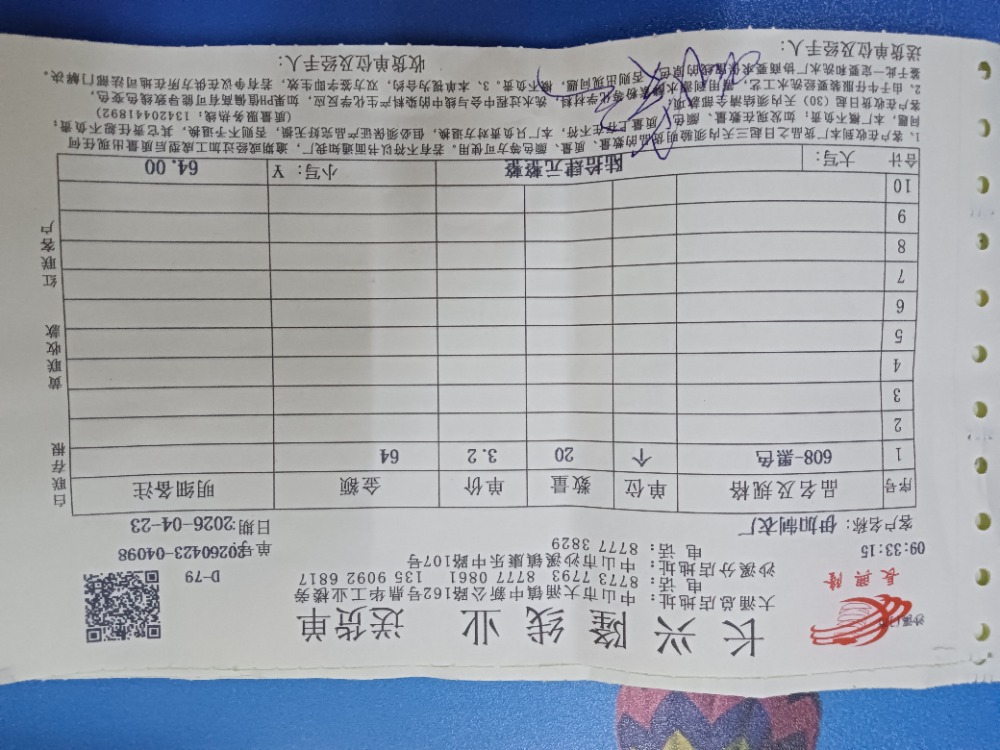 长兴隆线业 送货单
沙溪门
長興隆
大涌总店地址：中山市大涌镇中新公路162号鼎华工业楼旁
电 话：8773 7793 8777 0861 135 9092 6817
沙溪分店地址：中山市沙溪镇康乐中路107号
电 话：8777 3829
D-79
09:33:15
单号:20260423-04098
客户名称：伊加制衣厂
日期:2026-04-23
序号 品名及规格 单位 数量 单价 金额 明细备注
1 608-黑色 个 20 3.2 64
2
3
4
5
6
7
8
9
10
合计 大写： 陆拾肆元整整 小写：￥ 64.00
白联存根
黄联收款
红联客户
1、客户在收到本厂货品之日起三天内须验明货品的数量、质量、颜色等方可使用。若有不符以书面通知我厂，逾期或经过加工成型后质量出现任何
问题，本厂概不负责；如发现在数量、颜色、质量上存在不符，本厂只负责对方退换，但必须保证产品完好无损，否则不予退换，其它责任恕不负责；
客户在收货日起（30）天内须结清全部款项。 （质量服务热线：13420441892）
2、由于牛仔服装要经洗水工艺，需用到漂水、酵素粉等化学材料，洗水过程中会与线中的染料产生化学反应，如果PH值偏高有可能导致线色变色，
鉴于此一定要和洗水厂协商要求保留线的原色，否则出现问题，概不负责。3、本单视为合约，双方签字即生效，若有争议在供方所在地司法部门解决。
送货单位及经手人： 收货单位及经手人：